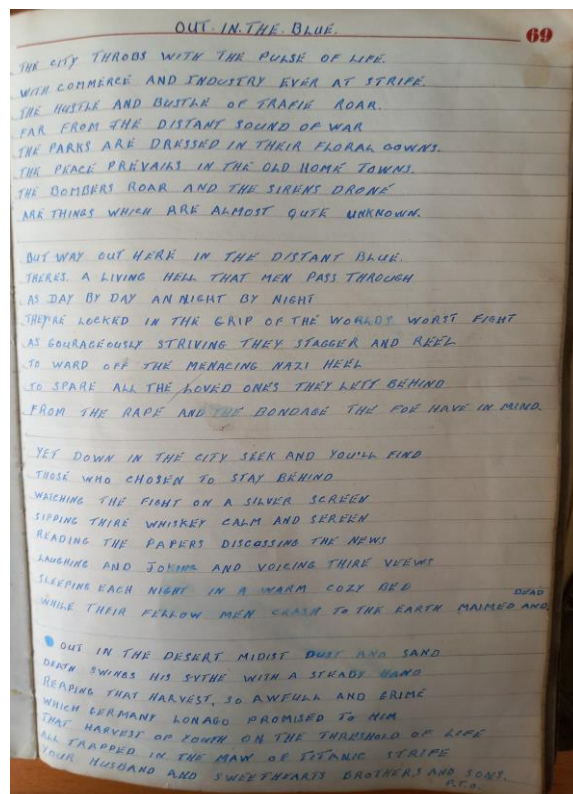 OUT. IN. THE. BLUE.
69
THE CITY THROBS WITH THE PULSE OF LIFE.
WITH COMMERCE AND INDUSTRY EVER AT STRIFE.
THE HUSTLE AND BUSTLE OF TRAFIE ROAR.
FAR FROM THE DISTANT SOUND OF WAR
THE PARKS ARE DRESSED IN THEIR FLORAL GOWNS.
THE PEACE PREVAILS IN THE OLD HOME TOWNS.
THE BOMBERS ROAR AND THE SIRENS DRONE
ARE THINGS WHICH ARE ALMOST QUTE UNKNOWN.
BUT WAY OUT HERE IN THE DISTANT BLUE.
THERES. A LIVING HELL THAT MEN PASS THROUGH
AS DAY BY DAY AN NIGHT BY NIGHT
THEY'RE LOCKED IN THE GRIP OF THE WORLDS WORST FIGHT
AS GOURAGEOUSLY STRIVING THEY STAGGER AND REEL
TO WARD OFF THE MENACING NAZI HEEL
TO SPARE ALL THE LOVED ONES THEY LEFT BEHIND
FROM THE RAPE AND THE BONDAGE THE FOE HAVE IN MIND.
YET DOWN IN THE CITY SEEK AND YOU'LL FIND
THOSE WHO CHOSEN TO STAY BEHIND
WATCHING THE FIGHT ON A SILVER SCREEN
SIPPING THIRE WHISKEY CALM AND SEREEN
READING THE PAPERS DISCASSING THE NEWS
LAUGHING AND JOKING AND VOICING THIRE VEEWS
SLEEPING EACH NIGHT IN A WARM COZY BED
WHILE THEIR FELLOW MEN CRASH TO THE EARTH MAIMED AND DEAD
OUT IN THE DESERT MIDIST DUST AND SAND
DEATH SWINGS HIS SYTHE WITH A STEADY HAND
REAPING THAT HARVEST, SO AWFULL AND GRIME
WHICH GERMANY LONAGO PROMISED TO HIM
THAT HARVEST OF YOUTH ON THE THRESHOLD OF LIFE
ALL TRAPPED IN THE MAW OF TITANIC STRIFE
YOUR HUSBAND AND SWEETHEARTS BROTHERS AND SONS.
P.T.O.